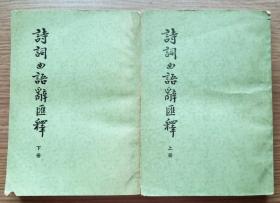 詩詞曲語辭匯釋
下册
詩詞曲語辭匯釋
上册